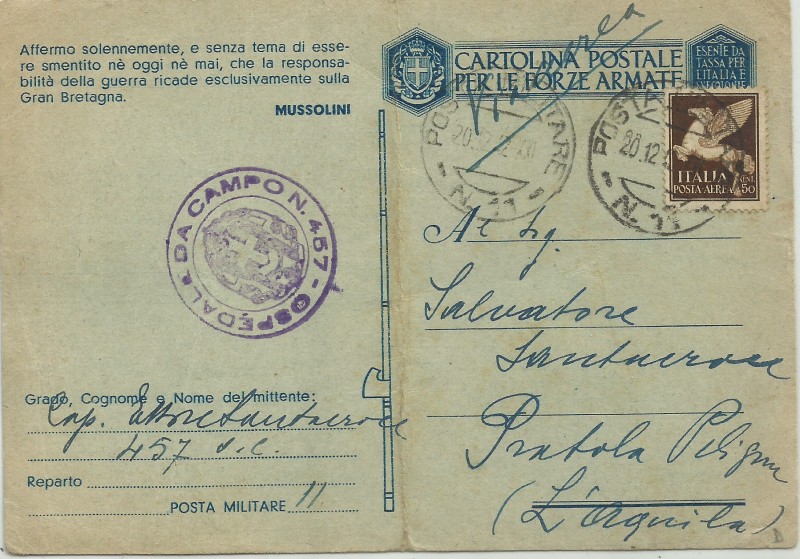 Affermo solennemente, e senza tema di esse-
re smentito nè oggi nè mai, che la responsa-
bilità della guerra ricade esclusivamente sulla
Gran Bretagna.
MUSSOLINI
CARTOLINA POSTALE
PER LE FORZE ARMATE
ESENTE DA
TASSA PER
L'ITALIA E
Via aerea
POSTA MILITARE
20.12.
N. 11
POSTA
20.12
N. 11
ITALIA CENT.
POSTA AEREA 50
OSPEDALE DA CAMPO N. 457
Al Sig.
Salvatore
Santacroce
Pratola Peligna
(L'Aquila)
Grado, Cognome e Nome del mittente:
Cap. Ettore Santacroce
457 o.c.
Reparto
POSTA MILITARE 11